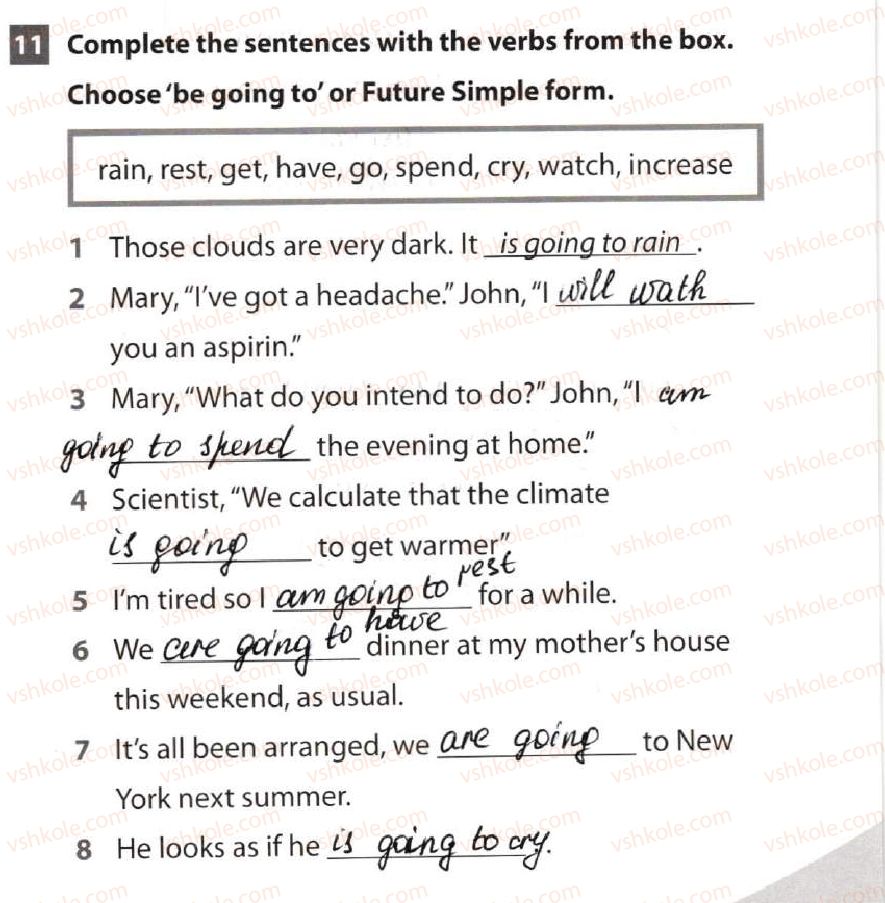 11 Complete the sentences with the verbs from the box.
Choose ‘be going to’ or Future Simple form.
rain, rest, get, have, go, spend, cry, watch, increase
1 Those clouds are very dark. It is going to rain.
2 Mary, “I’ve got a headache.” John, “I will wath
you an aspirin.”
3 Mary, “What do you intend to do?” John, “I am
going to spend the evening at home.”
4 Scientist, “We calculate that the climate
is going to get warmer”.
5 I’m tired so I am going to rest for a while.
6 We are going to have dinner at my mother’s house
this weekend, as usual.
7 It’s all been arranged, we are going to New
York next summer.
8 He looks as if he is going to cry.
vshkole.com